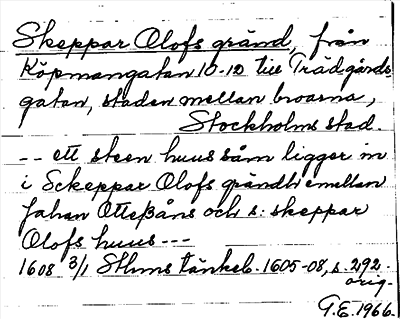 Skeppar Olofs gränd, från
Köpmangatan 10-12 till Trädgårds
gatan, staden mellan broarna,
Stockholms stad.
-- ett steen huus såm ligger in
i Sckeppar Olofs grändh emellan
Jahan Otteßåns och s: skeppar
Olofs huus ---
1608 3/1 Sthms tänkeb. 1605-08, s. 292.
orig.
G.E. 1966.